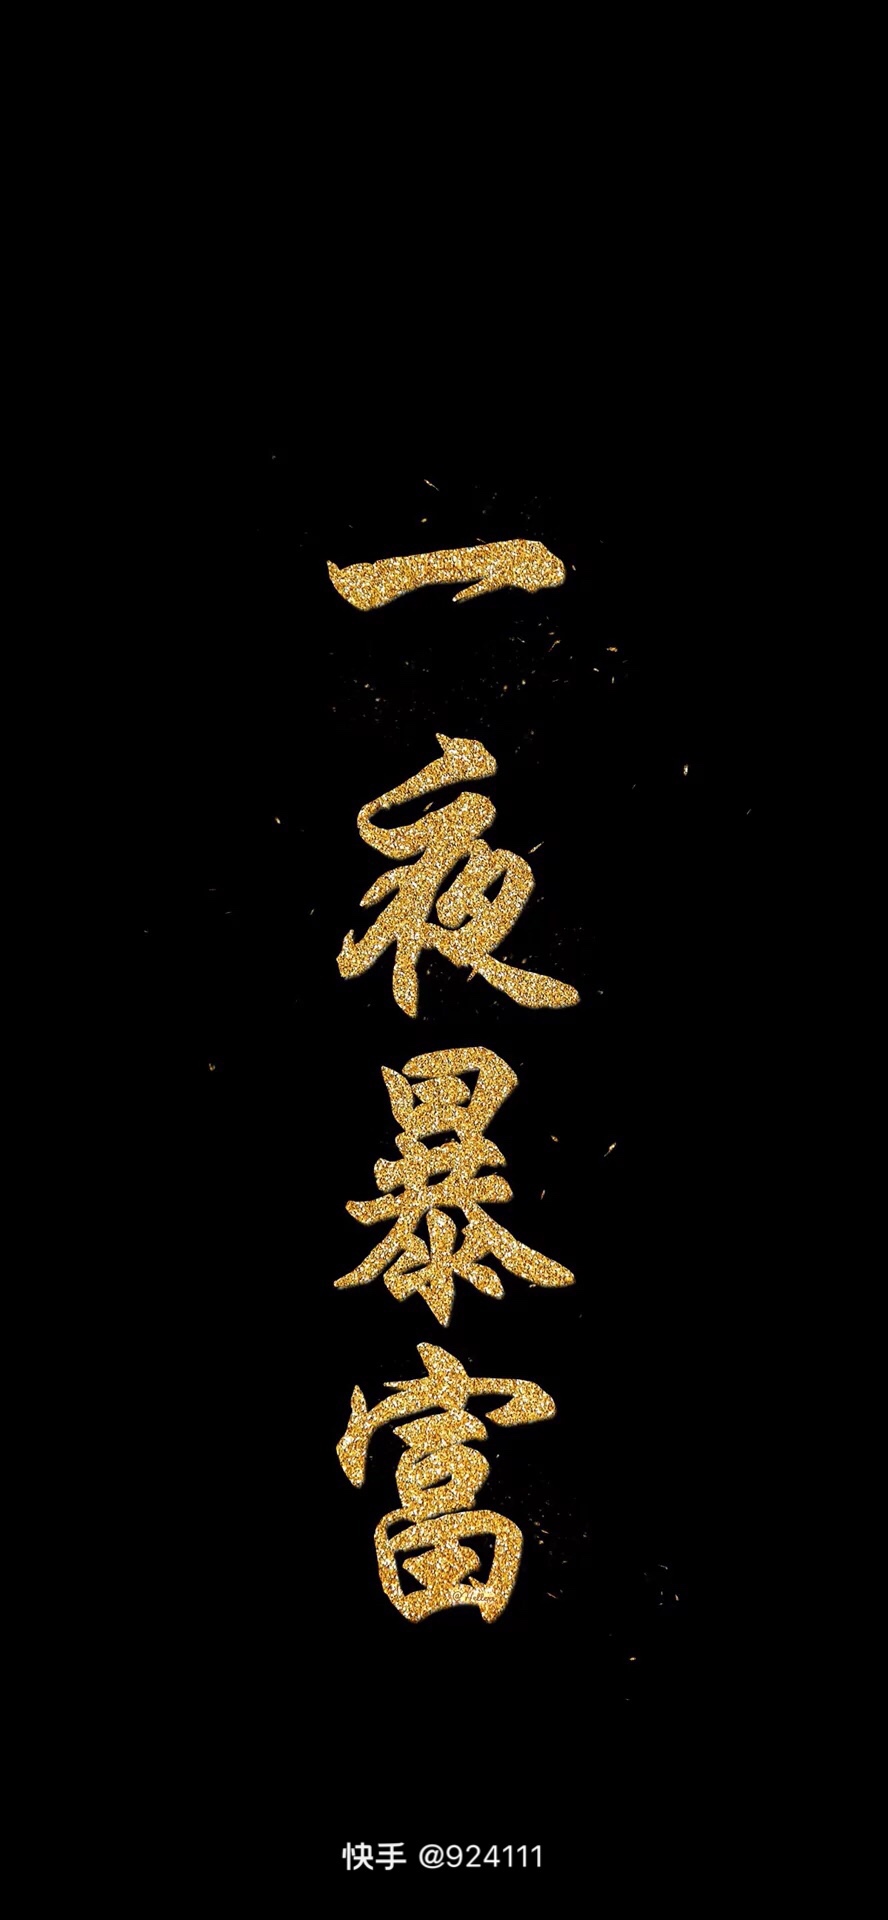 一夜暴富
快手 @924111